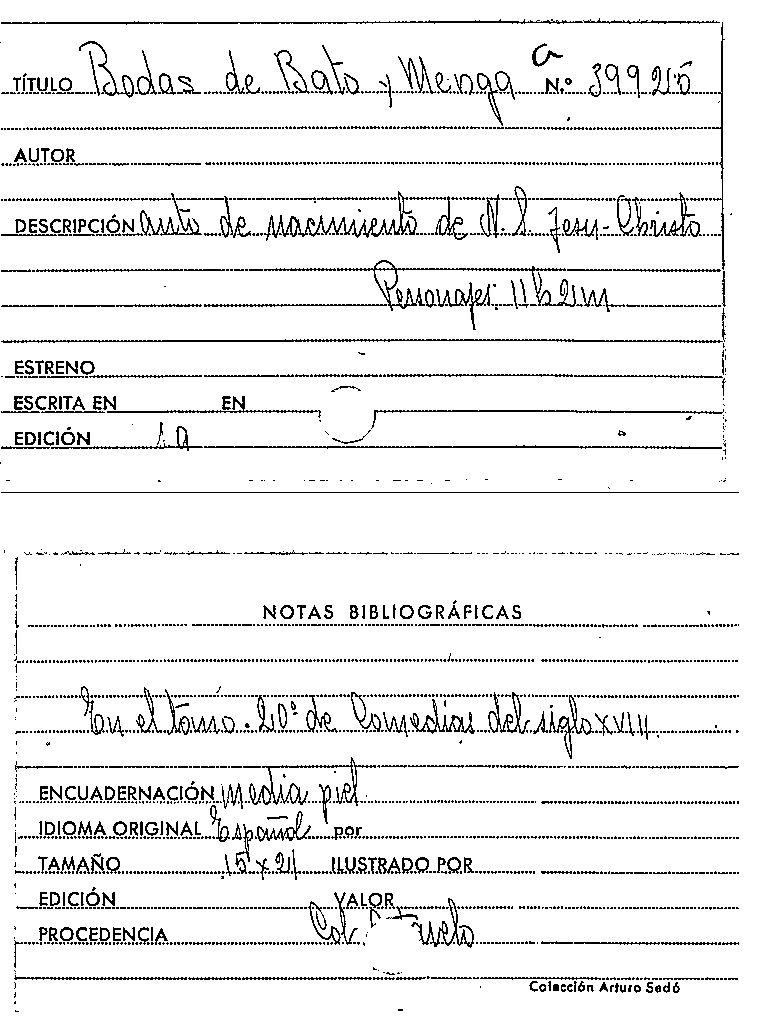 a
TÍTULO Bodas de Bato y Menga N.º 39925
AUTOR
DESCRIPCIÓN auto de nacimiento de N. S. Jesu-Christo
Personajes: 11 h 2 m
ESTRENO
ESCRITA EN EN
EDICIÓN
NOTAS BIBLIOGRÁFICAS
En el tomo. 20º de Comedias del siglo XVIII.
ENCUADERNACIÓN media piel
IDIOMA ORIGINAL Español por
TAMAÑO 15 x 21 ILUSTRADO POR
EDICIÓN VALOR
PROCEDENCIA Col.
Colección Arturo Sedó